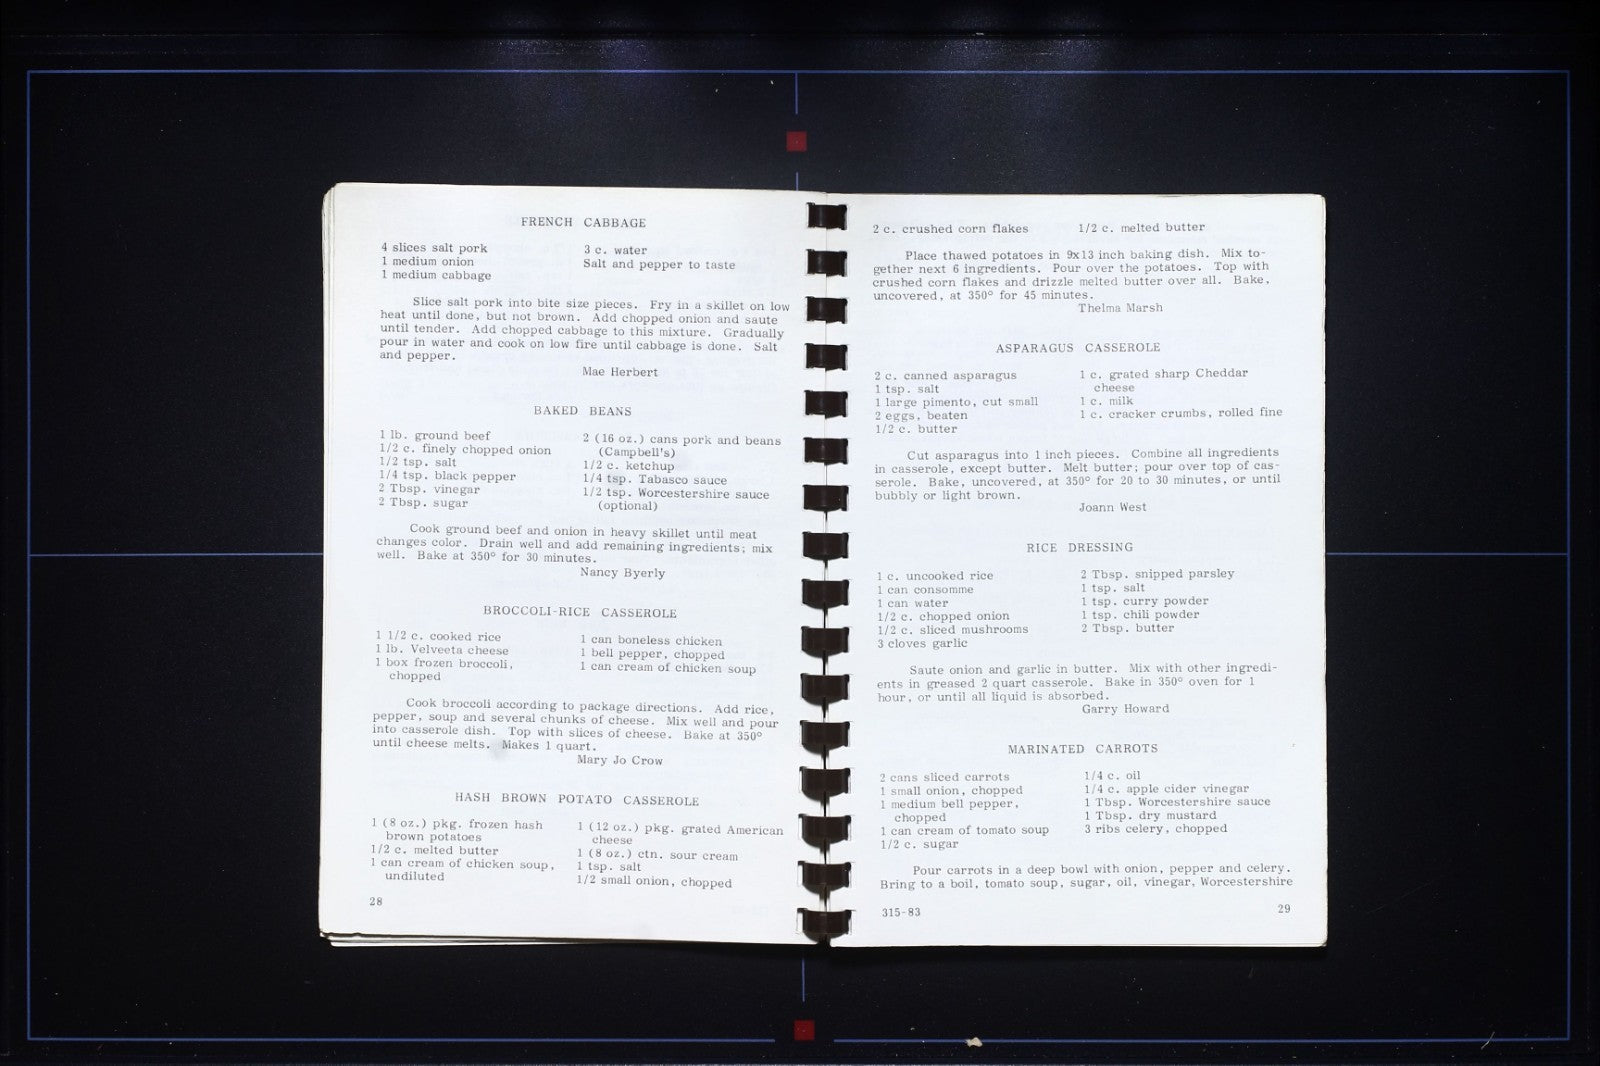 FRENCH CABBAGE
4 slices salt pork
1 medium onion
1 medium cabbage
3 c. water
Salt and pepper to taste
Slice salt pork into bite size pieces. Fry in a skillet on low
heat until done, but not brown. Add chopped onion and saute
until tender. Add chopped cabbage to this mixture. Gradually
pour in water and cook on low fire until cabbage is done. Salt
and pepper.
Mae Herbert
BAKED BEANS
1 lb. ground beef
1/2 c. finely chopped onion
1/2 tsp. salt
1/4 tsp. black pepper
2 Tbsp. vinegar
2 Tbsp. sugar
2 (16 oz.) cans pork and beans
(Campbell's)
1/2 c. ketchup
1/4 tsp. Tabasco sauce
1/2 tsp. Worcestershire sauce
(optional)
Cook ground beef and onion in heavy skillet until meat
changes color. Drain well and add remaining ingredients; mix
well. Bake at 350° for 30 minutes.
Nancy Byerly
BROCCOLI-RICE CASSEROLE
1 1/2 c. cooked rice
1 lb. Velveeta cheese
1 box frozen broccoli,
chopped
1 can boneless chicken
1 bell pepper, chopped
1 can cream of chicken soup
Cook broccoli according to package directions. Add rice,
pepper, soup and several chunks of cheese. Mix well and pour
into casserole dish. Top with slices of cheese. Bake at 350°
until cheese melts. Makes 1 quart.
Mary Jo Crow
HASH BROWN POTATO CASSEROLE
1 (8 oz.) pkg. frozen hash
brown potatoes
1/2 c. melted butter
1 can cream of chicken soup,
undiluted
1 (12 oz.) pkg. grated American
cheese
1 (8 oz.) ctn. sour cream
1 tsp. salt
1/2 small onion, chopped
28
2 c. crushed corn flakes
1/2 c. melted butter
Place thawed potatoes in 9x13 inch baking dish. Mix to-
gether next 6 ingredients. Pour over the potatoes. Top with
crushed corn flakes and drizzle melted butter over all. Bake,
uncovered, at 350° for 45 minutes.
Thelma Marsh
ASPARAGUS CASSEROLE
2 c. canned asparagus
1 tsp. salt
1 large pimento, cut small
2 eggs, beaten
1/2 c. butter
1 c. grated sharp Cheddar
cheese
1 c. milk
1 c. cracker crumbs, rolled fine
Cut asparagus into 1 inch pieces. Combine all ingredients
in casserole, except butter. Melt butter; pour over top of cas-
serole. Bake, uncovered, at 350° for 20 to 30 minutes, or until
bubbly or light brown.
Joann West
RICE DRESSING
1 c. uncooked rice
1 can consomme
1 can water
1/2 c. chopped onion
1/2 c. sliced mushrooms
3 cloves garlic
2 Tbsp. snipped parsley
1 tsp. salt
1 tsp. curry powder
1 tsp. chili powder
2 Tbsp. butter
Saute onion and garlic in butter. Mix with other ingredi-
ents in greased 2 quart casserole. Bake in 350° oven for 1
hour, or until all liquid is absorbed.
Garry Howard
MARINATED CARROTS
2 cans sliced carrots
1 small onion, chopped
1 medium bell pepper,
chopped
1 can cream of tomato soup
1/2 c. sugar
1/4 c. oil
1/4 c. apple cider vinegar
1 Tbsp. Worcestershire sauce
1 Tbsp. dry mustard
3 ribs celery, chopped
Pour carrots in a deep bowl with onion, pepper and celery.
Bring to a boil, tomato soup, sugar, oil, vinegar, Worcestershire
315-83
29